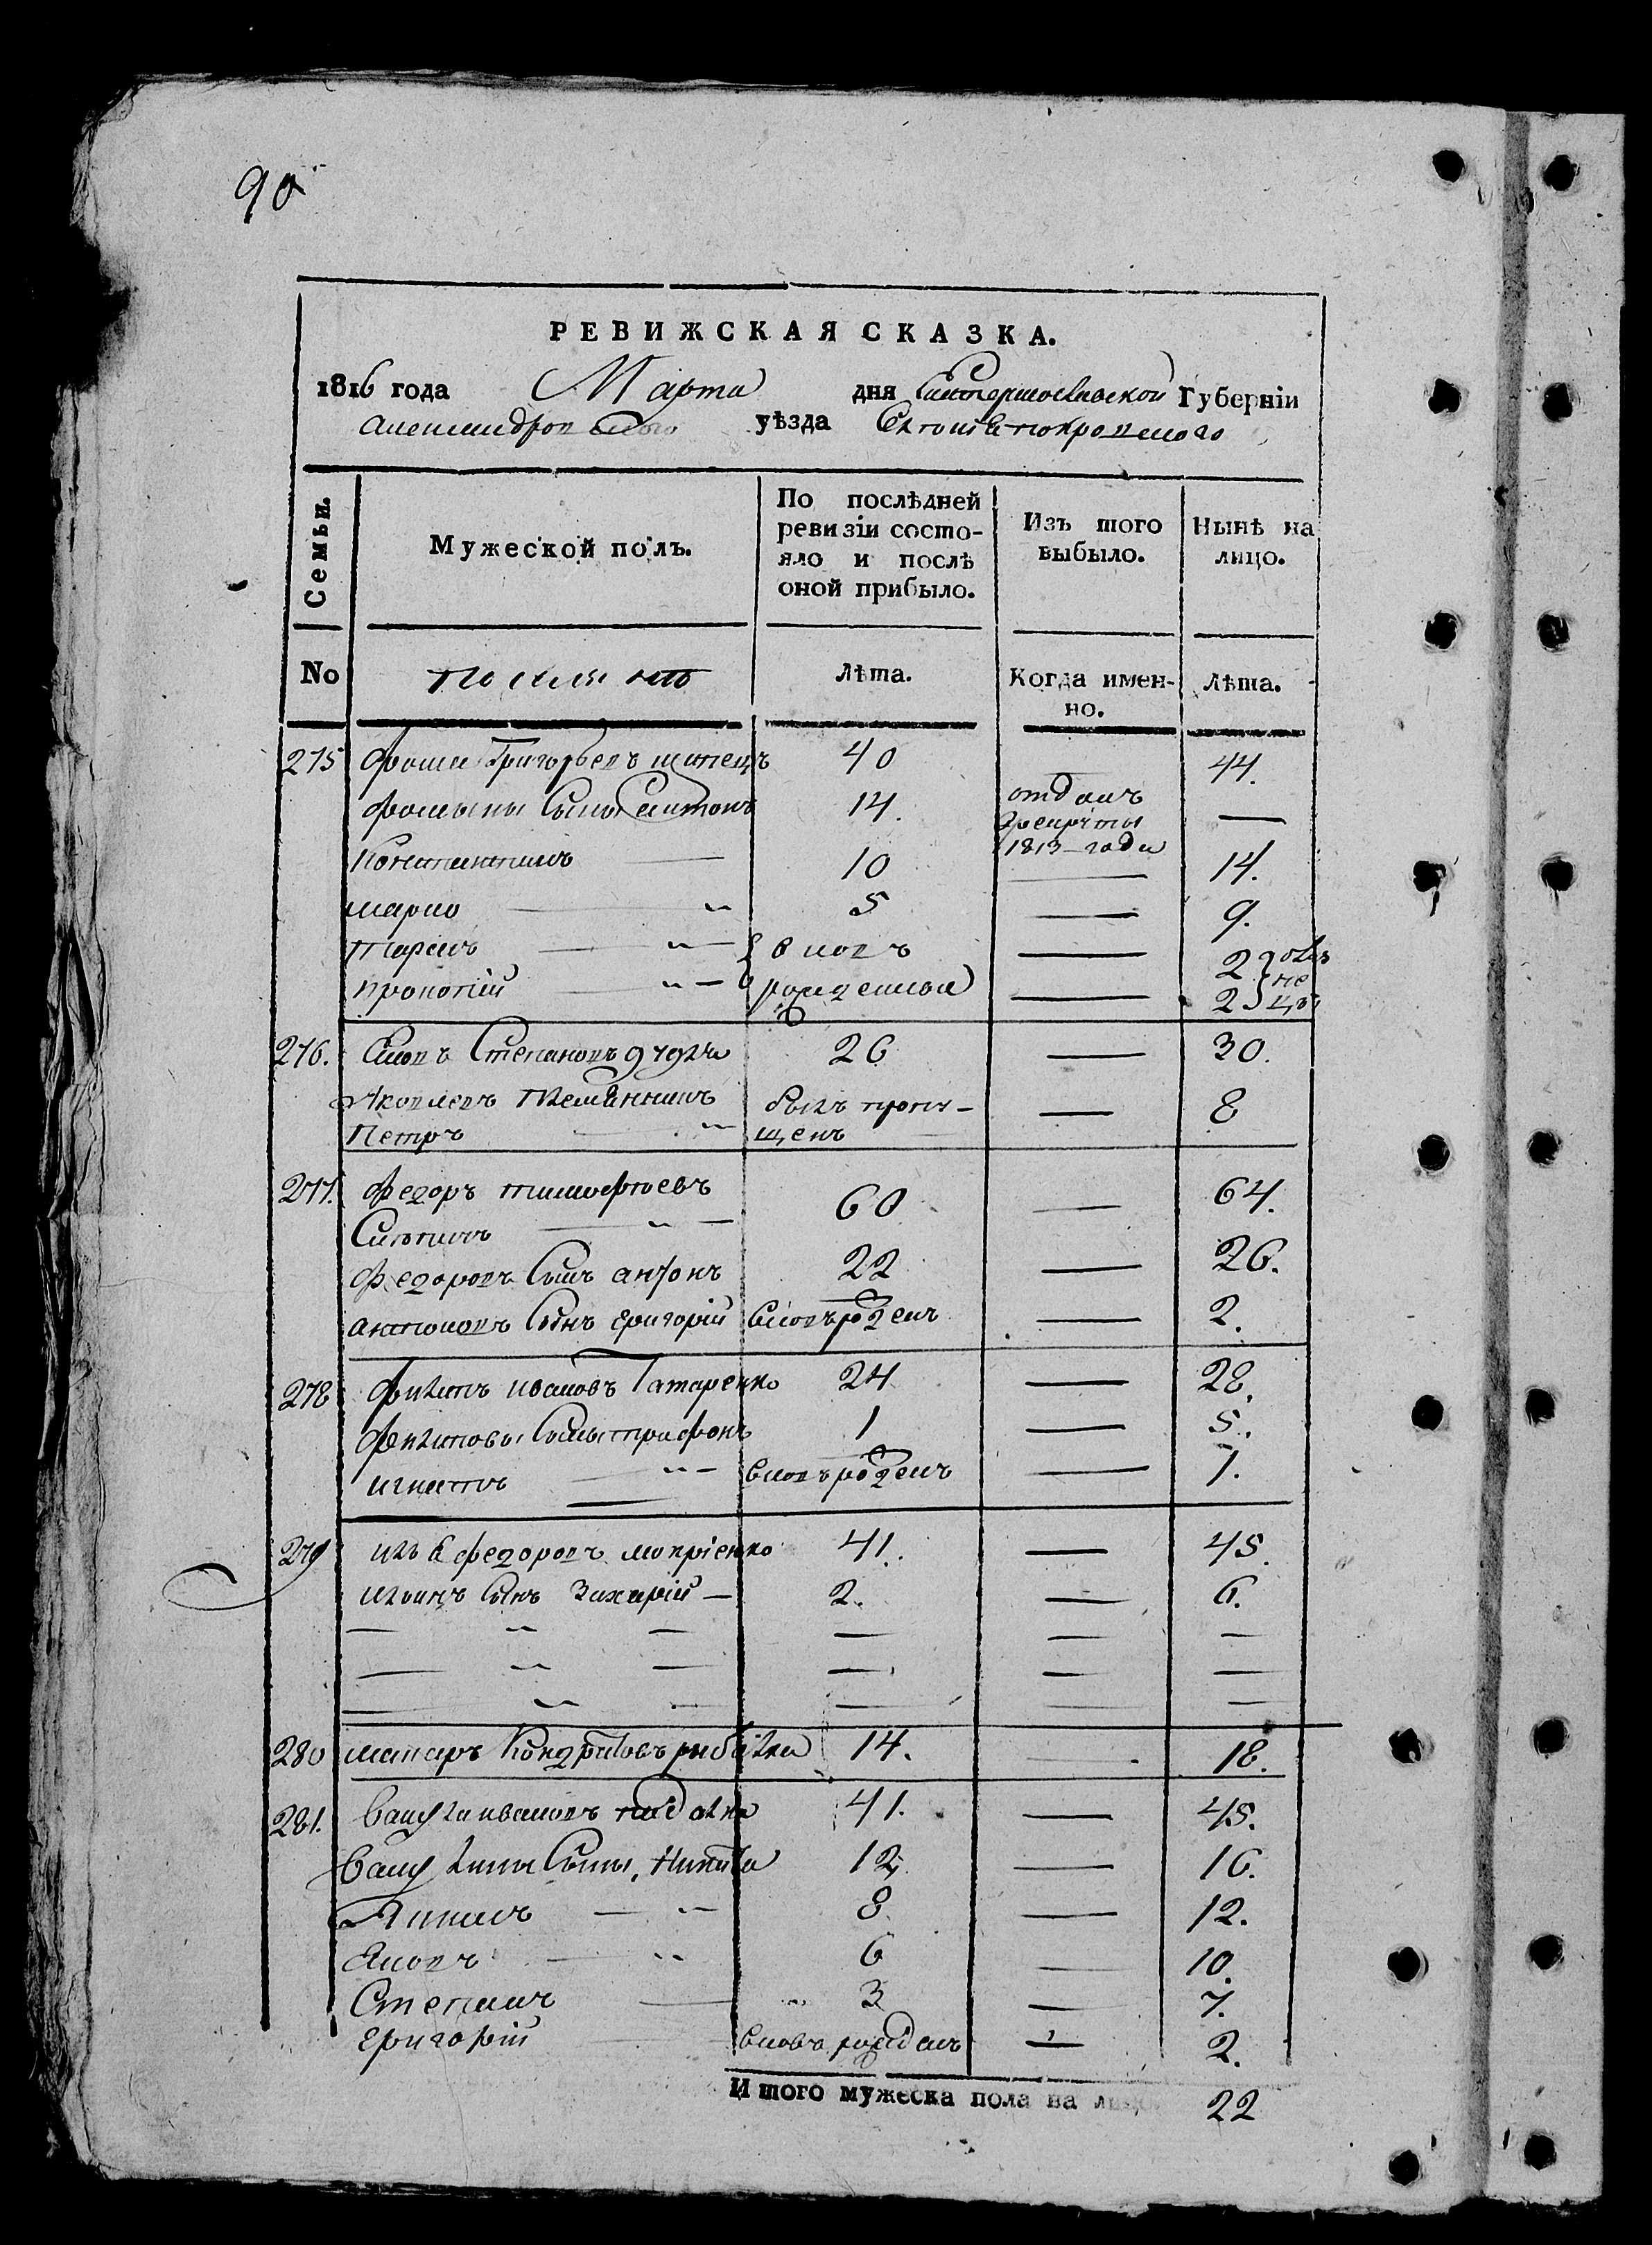 90
РЕВИЖСКАЯ СКАЗКА.
1816 года Марта дня Екатеринославской Губерніи
Александровского уѣзда
Семьи.
Мужеской полъ.
По послѣдней ревизіи состояло и послѣ оной прибыло.
Изъ того выбыло.
Нынѣ на лицо.
No
Лѣта.
Когда именно.
Лѣта.
275 Фома Григорьевъ 40 44.
Фомины сыны Антонъ 14. отданъ в рекруты 1813 года —
Константинъ — 10 — 14.
Марко — " 5 — 9.
Тарасъ — " — вновь — 2
Прокопій — " — рожденныя — 2
276. Степановъ 26 — 30.
Яковлевъ племянникъ былъ пропу-
Петръ " щенъ — 8
277. Федоръ Тимофѣевъ 60 — 64.
— " —
Федоровъ сынъ Антонъ 22 — 26.
Антоновъ сынъ Григорій вновь рожденъ — 2.
278 Филипъ Ивановъ Татаренко 24 — 28.
Филиповы сыны Трифонъ 1 — 5.
Игнатъ — " — вновь рожденъ — 1.
279 Илья Федоровъ Мокріенко 41. — 45.
Ильинъ сынъ Захарій — 2. — 6.
— " — — — —
— " — — — —
— " — — — —
280 Макаръ Кондратовъ 14. — 18.
281. Вакула Ивановъ 41. — 45.
Вакулины сыны, Никита 12. — 16.
— " 8 — 12.
— " 6 — 10.
Степанъ — " 3 — 7.
Григорій вновь рожденъ — 2.
Итого мужеска пола на лицо 22